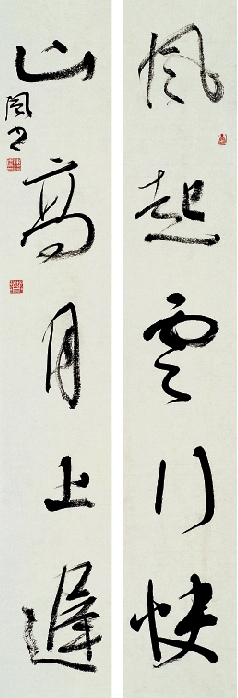 風起雲行快
山高月上遲